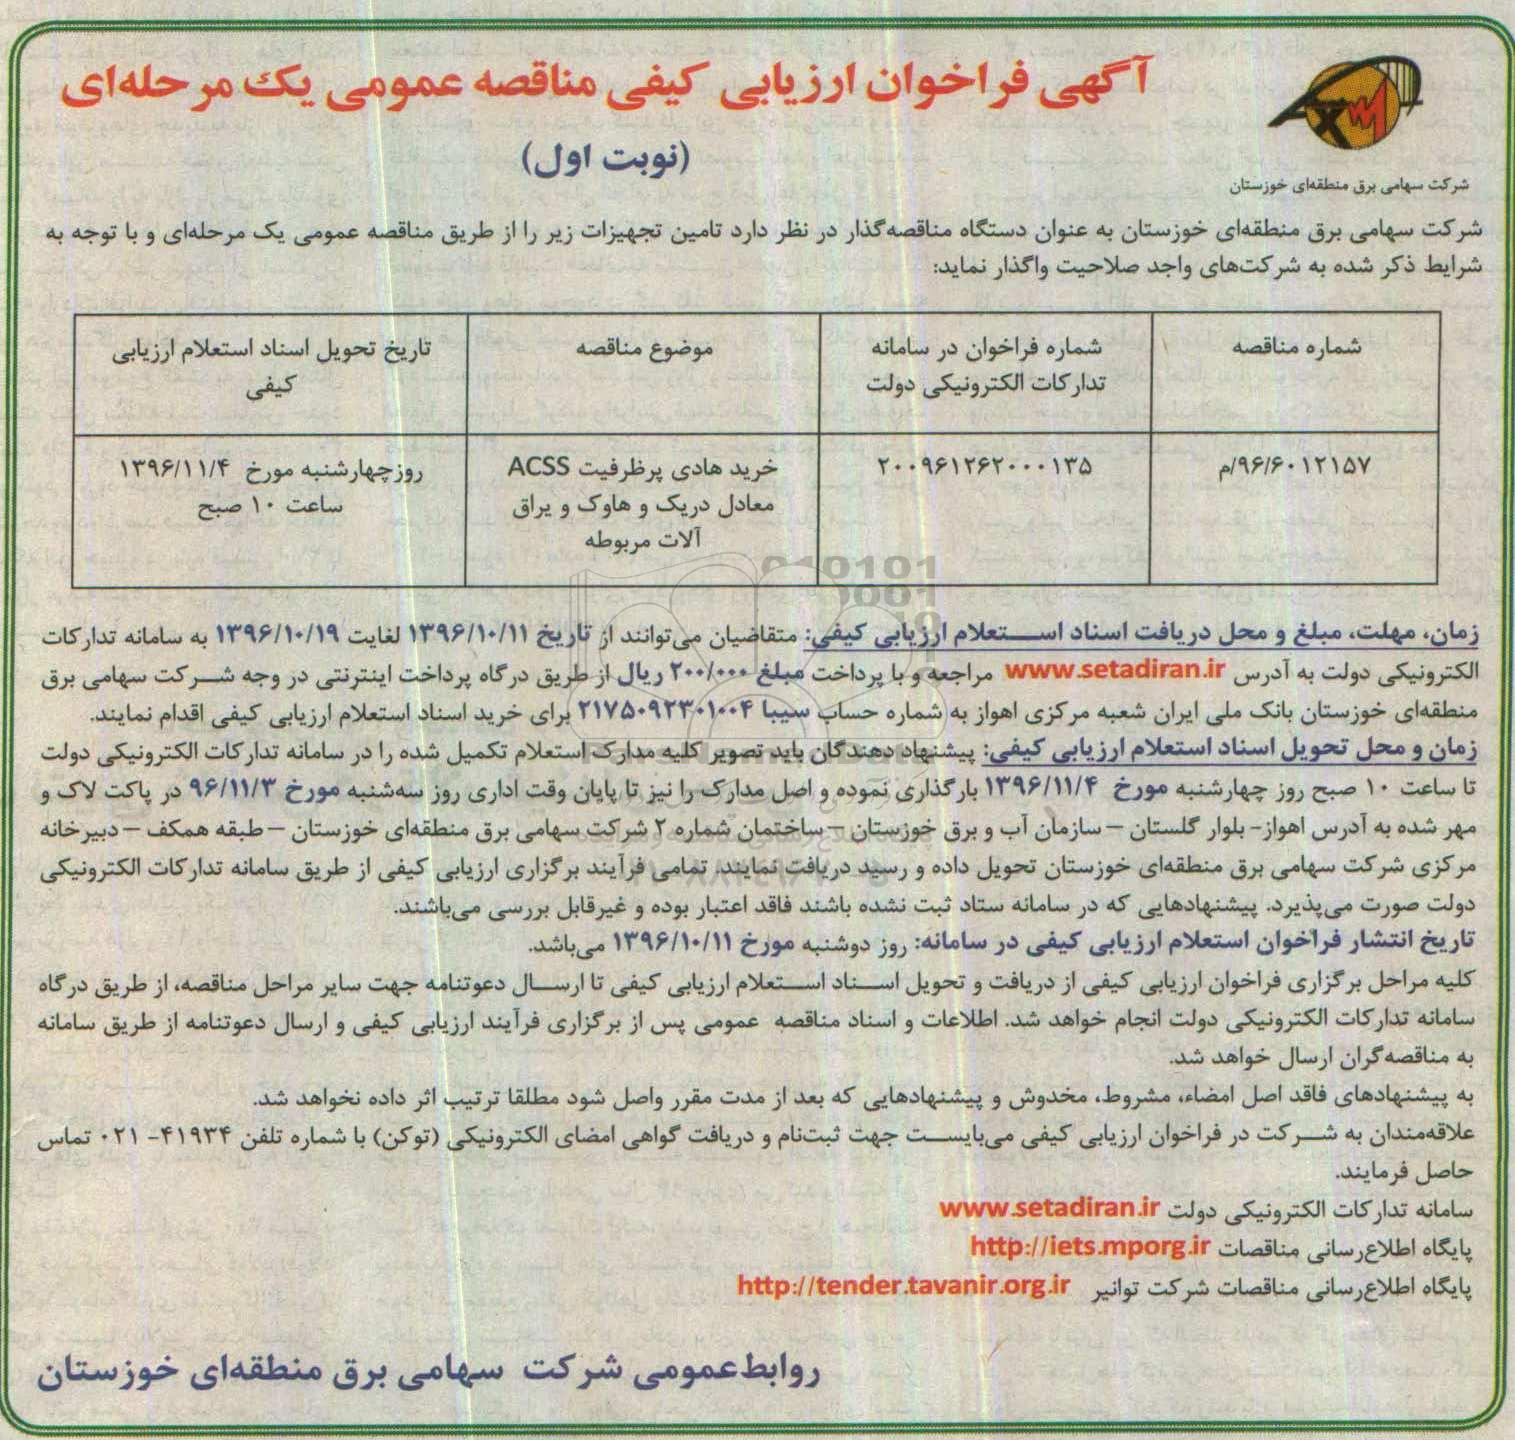 آگهی فراخوان ارزیابی کیفی مناقصه عمومی یک مرحله‌ای
(نوبت اول)
شرکت سهامی برق منطقه‌ای خوزستان
شرکت سهامی برق منطقه‌ای خوزستان به عنوان دستگاه مناقصه‌گذار در نظر دارد تامین تجهیزات زیر را از طریق مناقصه عمومی یک مرحله‌ای و با توجه به
شرایط ذکر شده به شرکت‌های واجد صلاحیت واگذار نماید:
شماره مناقصه
شماره فراخوان در سامانه
تدارکات الکترونیکی دولت
موضوع مناقصه
تاریخ تحویل اسناد استعلام ارزیابی
کیفی
۹۶/۶۰۱۲۱۵۷/م
۲۰۰۹۶۱۲۶۲۰۰۰۱۳۵
خرید هادی پرظرفیت ACSS
معادل دریک و هاوک و یراق
آلات مربوطه
روزچهارشنبه مورخ ۱۳۹۶/۱۱/۴
ساعت ۱۰ صبح
زمان، مهلت، مبلغ و محل دریافت اسناد استعلام ارزیابی کیفی: متقاضیان می‌توانند از تاریخ ۱۳۹۶/۱۰/۱۱ لغایت ۱۳۹۶/۱۰/۱۹ به سامانه تدارکات
الکترونیکی دولت به آدرس www.setadiran.ir مراجعه و با پرداخت مبلغ ۲۰۰/۰۰۰ ریال از طریق درگاه پرداخت اینترنتی در وجه شرکت سهامی برق
منطقه‌ای خوزستان بانک ملی ایران شعبه مرکزی اهواز به شماره حساب سیبا ۲۱۷۵۰۹۲۳۰۱۰۰۴ برای خرید اسناد استعلام ارزیابی کیفی اقدام نمایند.
زمان و محل تحویل اسناد استعلام ارزیابی کیفی: پیشنهاد دهندگان باید تصویر کلیه مدارک استعلام تکمیل شده را در سامانه تدارکات الکترونیکی دولت
تا ساعت ۱۰ صبح روز چهارشنبه مورخ ۱۳۹۶/۱۱/۴ بارگذاری نموده و اصل مدارک را نیز تا پایان وقت اداری روز سه‌شنبه مورخ ۹۶/۱۱/۳ در پاکت لاک و
مهر شده به آدرس اهواز- بلوار گلستان – سازمان آب و برق خوزستان – ساختمان شماره ۲ شرکت سهامی برق منطقه‌ای خوزستان – طبقه همکف – دبیرخانه
مرکزی شرکت سهامی برق منطقه‌ای خوزستان تحویل داده و رسید دریافت نمایند. تمامی فرآیند برگزاری ارزیابی کیفی از طریق سامانه تدارکات الکترونیکی
دولت صورت می‌پذیرد. پیشنهادهایی که در سامانه ستاد ثبت نشده باشند فاقد اعتبار بوده و غیرقابل بررسی می‌باشند.
تاریخ انتشار فراخوان استعلام ارزیابی کیفی در سامانه: روز دوشنبه مورخ ۱۳۹۶/۱۰/۱۱ می‌باشد.
کلیه مراحل برگزاری فراخوان ارزیابی کیفی از دریافت و تحویل اسناد استعلام ارزیابی کیفی تا ارسال دعوتنامه جهت سایر مراحل مناقصه، از طریق درگاه
سامانه تدارکات الکترونیکی دولت انجام خواهد شد. اطلاعات و اسناد مناقصه عمومی پس از برگزاری فرآیند ارزیابی کیفی و ارسال دعوتنامه از طریق سامانه
به مناقصه‌گران ارسال خواهد شد.
به پیشنهادهای فاقد اصل امضاء، مشروط، مخدوش و پیشنهادهایی که بعد از مدت مقرر واصل شود مطلقا ترتیب اثر داده نخواهد شد.
علاقه‌مندان به شرکت در فراخوان ارزیابی کیفی می‌بایست جهت ثبت‌نام و دریافت گواهی امضای الکترونیکی (توکن) با شماره تلفن ۴۱۹۳۴- ۰۲۱ تماس
حاصل فرمایند.
سامانه تدارکات الکترونیکی دولت www.setadiran.ir
پایگاه اطلاع‌رسانی مناقصات http://iets.mporg.ir
پایگاه اطلاع‌رسانی مناقصات شرکت توانیر http://tender.tavanir.org.ir
روابط‌عمومی شرکت سهامی برق منطقه‌ای خوزستان